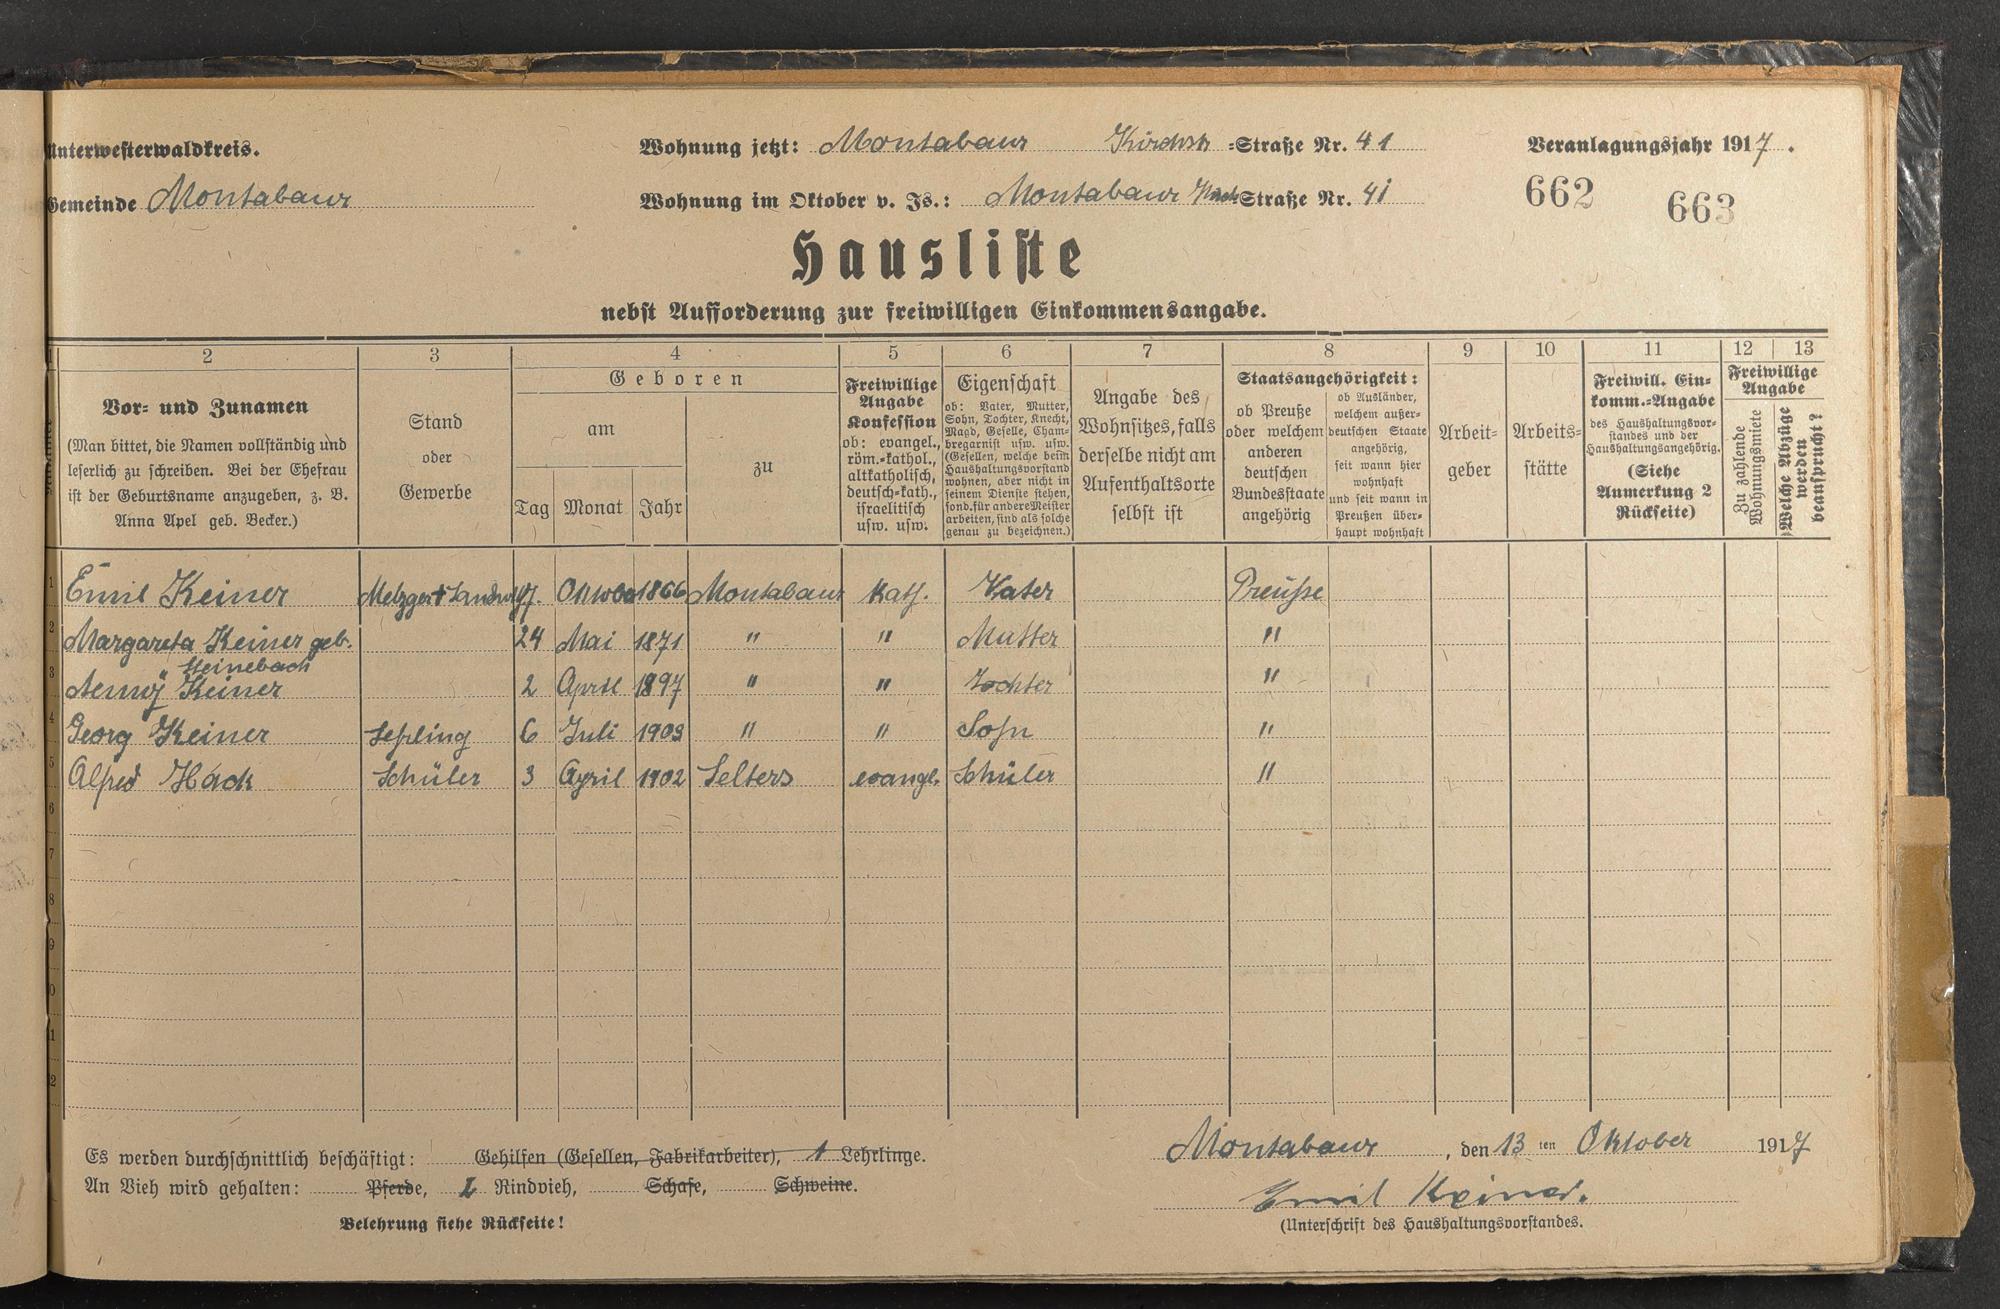 Unterwesterwaldkreis.
Wohnung jetzt: Montabaur Kirchstr =Straße Nr. 41
Veranlagungsjahr 1917.
Gemeinde Montabaur
Wohnung im Oktober v. Js.: Montabaur Straße Nr. 41
662 663
Hausliste
nebst Aufforderung zur freiwilligen Einkommensangabe.
2 3 4 5 6 7 8 9 10 11 12 13
Vor- und Zunamen
(Man bittet, die Namen vollständig und
leserlich zu schreiben. Bei der Ehefrau
ist der Geburtsname anzugeben, z. B.
Anna Apel geb. Becker.)
Stand
oder
Gewerbe
Geboren
am
Tag Monat Jahr
zu
Freiwillige
Angabe
Konfession
ob: evangel.,
röm.-kathol.,
altkatholisch,
deutsch-kath.,
israelitisch
usw. usw.
Eigenschaft
ob: Vater, Mutter,
Sohn, Tochter, Knecht,
Magd, Geselle, Cham-
bregarnist usw. usw.
(Gesellen, welche beim
Haushaltungsvorstand
wohnen, aber nicht in
seinem Dienste stehen,
sond. für andere Meister
arbeiten, sind als solche
genau zu bezeichnen.)
Angabe des
Wohnsitzes, falls
derselbe nicht am
Aufenthaltsorte
selbst ist
Staatsangehörigkeit:
ob Preuße
oder welchem
anderen
deutschen
Bundesstaate
angehörig
ob Ausländer,
welchem außer-
deutschen Staate
angehörig,
seit wann hier
wohnhaft
und seit wann in
Preußen über-
haupt wohnhaft
Arbeit-
geber
Arbeits-
stätte
Freiwill. Ein-
komm.-Angabe
des Haushaltungsvor-
standes und der
Haushaltungsangehörig.
(Siehe
Anmerkung 2
Rückseite)
Freiwillige
Angabe
Zu zahlende
Wohnungsmiete
Welche Abzüge
werden
beansprucht?
1 Emil Keiner Metzger + Landw 17. Oktober 1866 Montabaur kath. Vater Preuße
2 Margareta Keiner geb. 24 Mai 1871 " " Mutter "
Heinebach
3 Aenny Keiner 2 April 1897 " " Tochter "
4 Georg Keiner Lehrling 6 Juli 1903 " " Sohn "
5 Alfred Hack Schüler 3 April 1902 Selters evangl. Schüler "
6
7
8
9
0
11
2
Es werden durchschnittlich beschäftigt: Gehilfen (Gesellen, Fabrikarbeiter), 1 Lehrlinge.
An Vieh wird gehalten: Pferde, 2 Rindvieh, Schafe, Schweine.
Belehrung siehe Rückseite!
Montabaur, den 13 ten Oktober 1917
Emil Keiner.
(Unterschrift des Haushaltungsvorstandes.